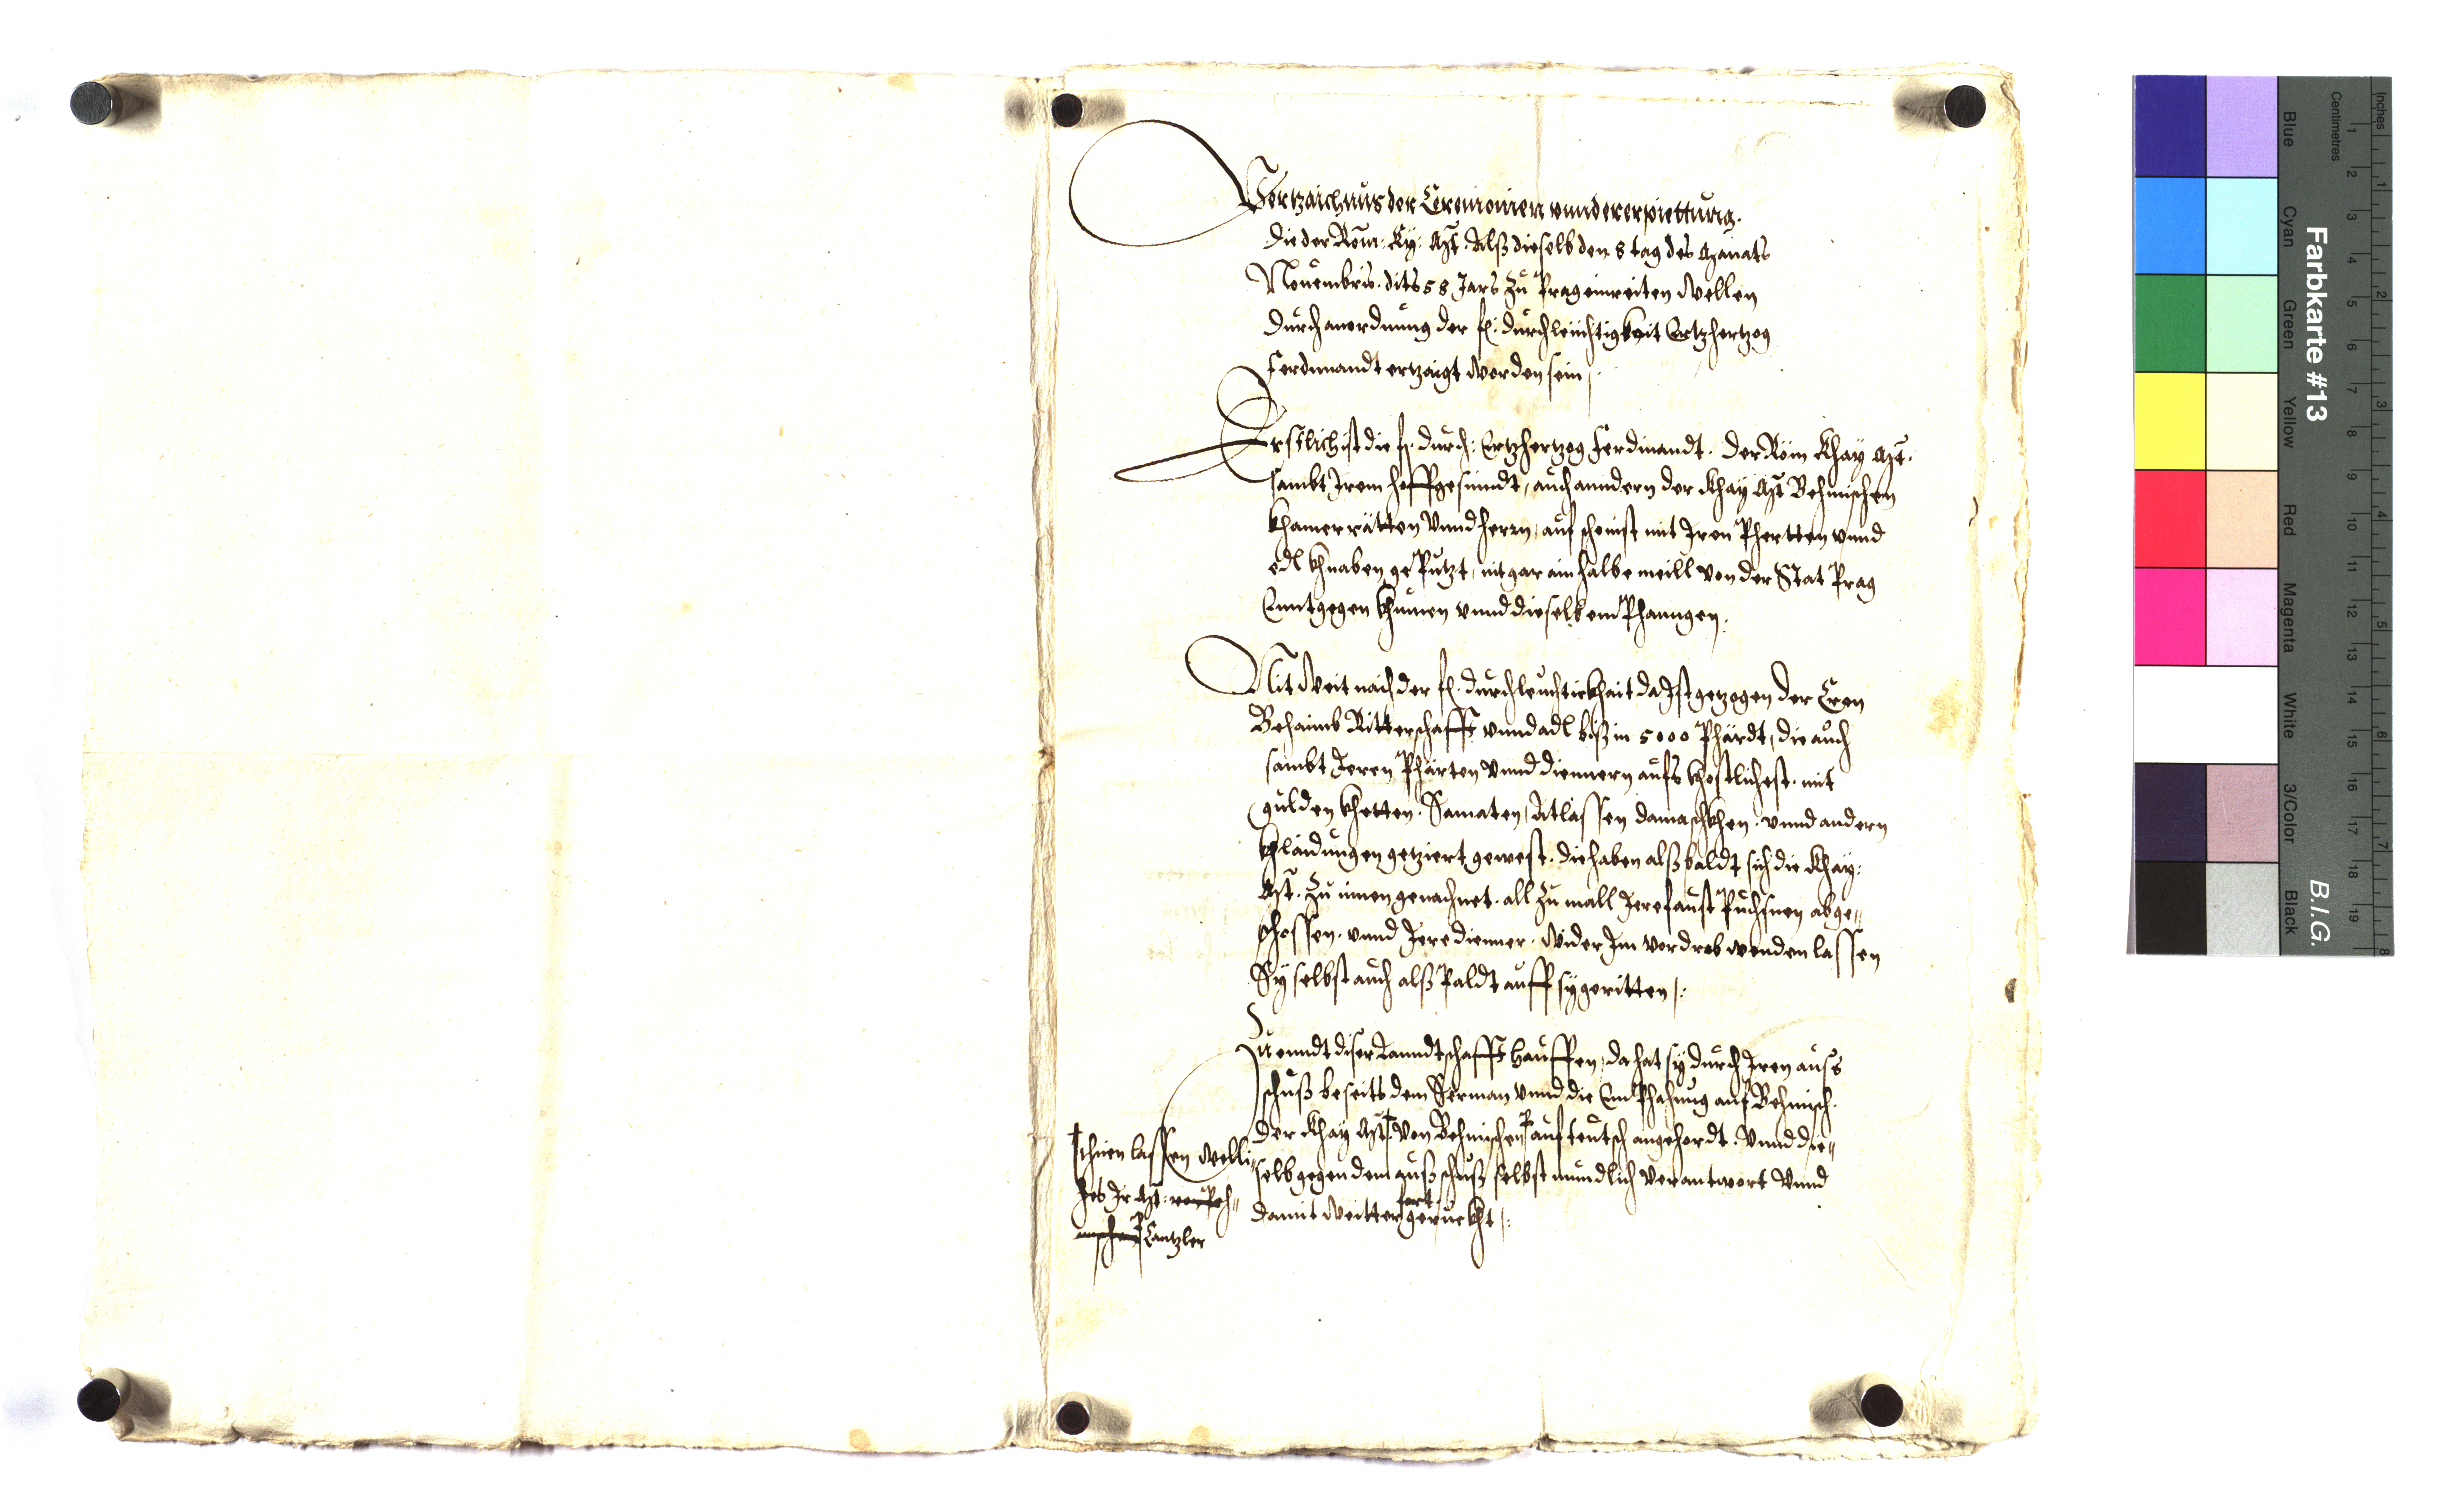 Vertzaichnus der Ceremonien vnnd ererpiettung.
Die der Röm: Kȳ: Mt. Alß dieselb den 8 tag des Monats
Nouembris. dits 58 Jars Zu Prag einreiten wellen
durch anordnung der fr: durchleuchtigkeit Ertzhertzog
Ferdinandt ertzaigt worden sein /.
Erstlich ist die fr: durch: Ertzhertzog Ferdinandt. der Röm Khay Mt.
sambt Irem hoffgesindt, auch anndern der Khay Mt Behmischen
Khamerrätten Vnnd herrn, auf schenist mit Iren Phertten vnnd
edl Khnaben gePutzt, nit gar ain halbe meill von der Stat Prag
Enntgegen khumen vnnd dieselb emPhanngen.
Nit Weit nach der fr: durchleuchtickhait da Ist getzogen der Cron
Behaimb Ritterschafft vnnd adl biß in 5000 Phärdt, die auch
sambt Ieren Phärten Vnnd diennern aufs khostlichest. mit
gulden khetten. Samaten, Atlassen damaschkhen. vnnd andern
khlaidungen getziert gewest. die haben alßbaldt sich die Khay:
Mt. Zu innen genachnet. all Zu mall Iere faust Puchsnen abge„
schossen. vnnd Iere dienner. Wider Im Vordrab wenden lassen
Sy selbst auch alß Paldt auff sy geritten /:
Zu ennd diser Lanndtschafft Hauffen, da hat sy durch Iren aus
schuß beseits dem Herman vnnd die EmPhahung auf Behmisch.
Der Khay Mt † Von Behmischen auf teutsch angehordt. Vnnd die„
selb gegen dem außschuß selbst mundlich verantwort Vnnd
damit Weitter fort geruckht /:
† ihnen lassen Welli„
hes Ir Mt: von Beh„
mischen Cantzler
Farbkarte #13
B.I.G.
Inches
Centimetres
1 2 3 4 5 6 7 8 9 10 11 12 13 14 15 16 17 18 19
1 2 3 4 5 6 7 8
Blue
Cyan
Green
Yellow
Red
Magenta
White
3/Color
Black